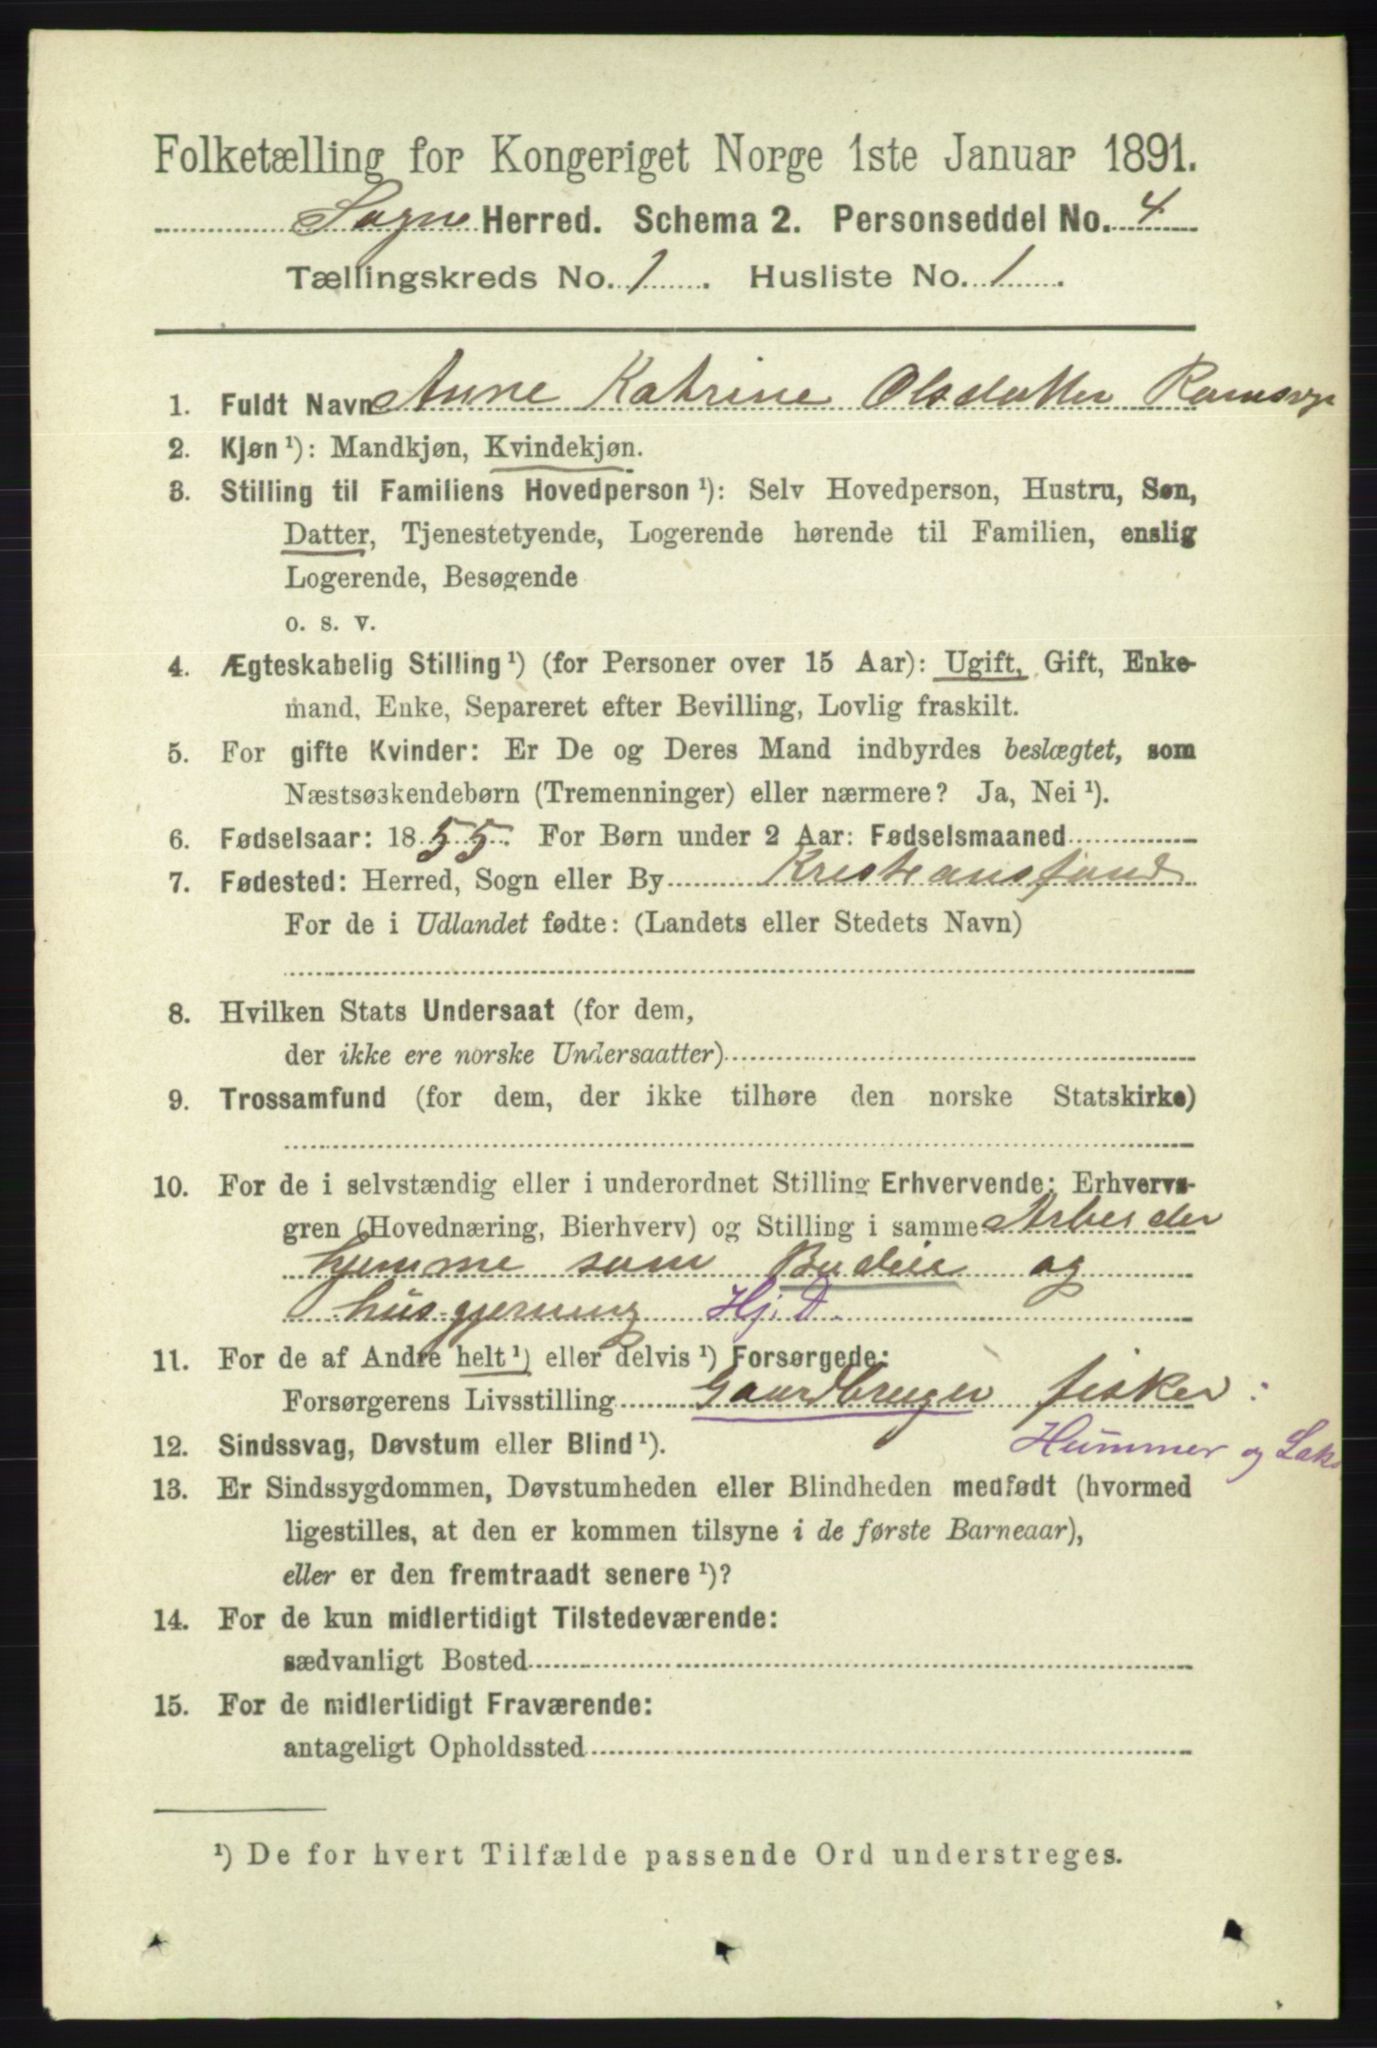 Folketælling for Kongeriget Norge 1ste Januar 1891.
Søgne Herred. Schema 2. Personseddel No. 4
Tællingskreds No. 1. Husliste No. 1.
1. Fuldt Navn Anne Katrine Olsdatter
2. Kjøn ¹): Mandkjøn, Kvindekjøn.
3. Stilling til Familiens Hovedperson ¹): Selv Hovedperson, Hustru, Søn,
Datter, Tjenestetyende, Logerende hørende til Familien, enslig
Logerende, Besøgende
o. s. v.
4. Ægteskabelig Stilling ¹) (for Personer over 15 Aar): Ugift, Gift, Enke-
mand, Enke, Separeret efter Bevilling, Lovlig fraskilt.
5. For gifte Kvinder: Er De og Deres Mand indbyrdes beslægtet, som
Næstsøskendebørn (Tremenninger) eller nærmere? Ja, Nei ¹).
6. Fødselsaar: 1855. For Børn under 2 Aar: Fødselsmaaned
7. Fødested: Herred, Sogn eller By Kristianssand
For de i Udlandet fødte: (Landets eller Stedets Navn)
8. Hvilken Stats Undersaat (for dem,
der ikke ere norske Undersaatter)
9. Trossamfund (for dem, der ikke tilhøre den norske Statskirke)
10. For de i selvstændig eller i underordnet Stilling Erhvervende: Erhvervs-
gren (Hovednæring, Bierhverv) og Stilling i samme Arbeider
hjemme som Budeie og
husgjerning Hj. D.
11. For de af Andre helt ¹) eller delvis ¹) Forsørgede:
Forsørgerens Livsstilling Gaardbruger fisker:
Hummer og Laks
12. Sindssvag, Døvstum eller Blind ¹).
13. Er Sindssygdommen, Døvstumheden eller Blindheden medfødt (hvormed
ligestilles, at den er kommen tilsyne i de første Barneaar),
eller er den fremtraadt senere ¹)?
14. For de kun midlertidigt Tilstedeværende:
sædvanligt Bosted
15. For de midlertidigt Fraværende:
antageligt Opholdssted
¹) De for hvert Tilfælde passende Ord understreges.